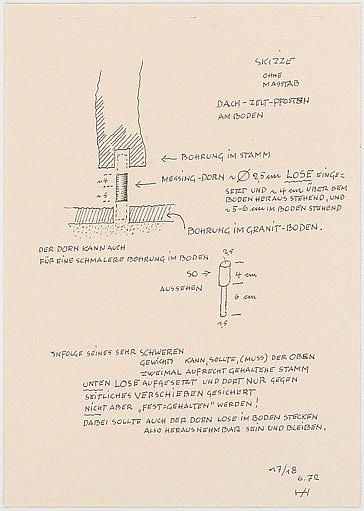 SKIZZE
OHNE
MASSTAB
DACH-ZELT-PFOSTEN
AM BODEN
BOHRUNG IM STAMM
MESSING-DORN ~ Ø 2,5 cm LOSE EINGE-
SETZT UND ~ 4 cm ÜBER DEM
BODEN HERAUS STEHEND, UND
~ 5-6 cm IM BODEN STEHEND
~4
~5
BOHRUNG IM GRANIT-BODEN.
DER DORN KANN AUCH
FÜR EINE SCHMALERE BOHRUNG IM BODEN
SO
AUSSEHEN
2,5
4 cm
6 cm
1,5
INFOLGE SEINES SEHR SCHWEREN
GEWICHTS KANN, SOLLTE, (MUSS) DER OBEN
ZWEIMAL AUFRECHT GEHALTENE STAMM
UNTEN LOSE AUFGESETZT UND DORT NUR GEGEN
SEITLICHES VERSCHIEBEN GESICHERT
NICHT ABER „FEST=GEHALTEN" WERDEN!
DABEI SOLLTE AUCH DER DORN LOSE IM BODEN STECKEN
ALSO HERAUSNEHMBAR SEIN UND BLEIBEN.
17/18
6.72